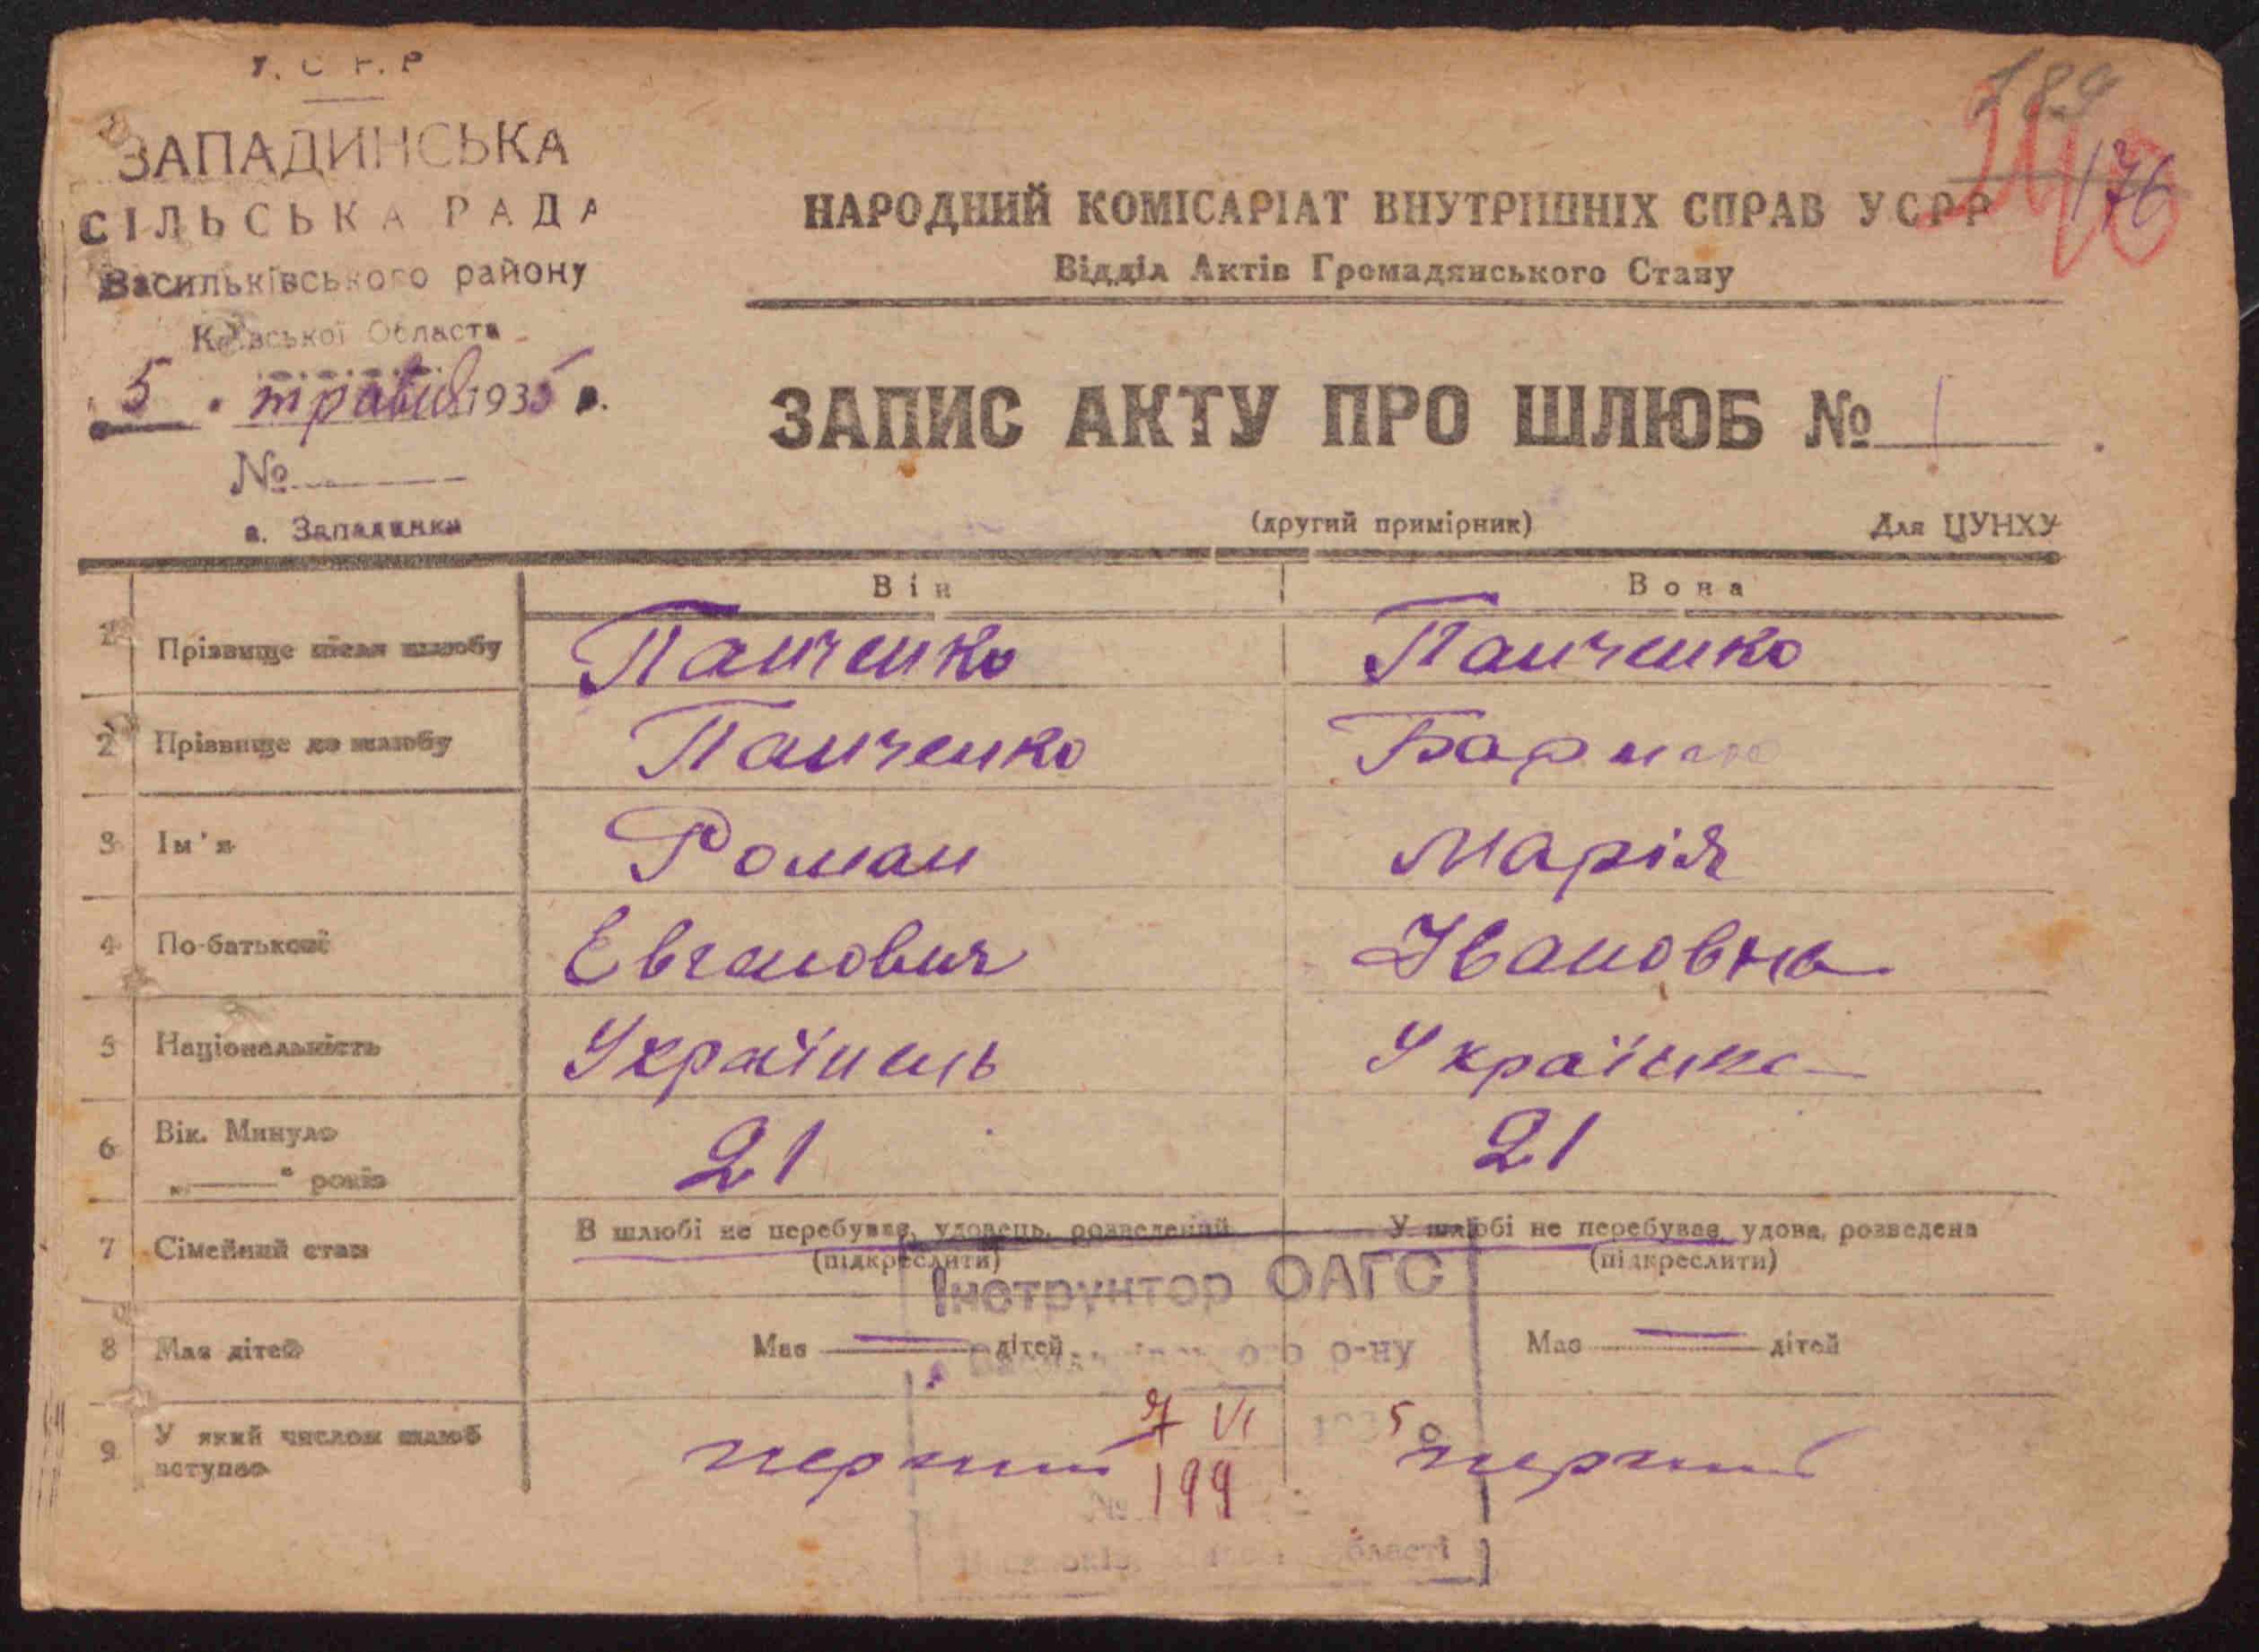 У. С. Р. Р
ЗАПАДИНСЬКА
СІЛЬСЬКА РАДА
Васильківського району
Київської Области
5 травня 1935 р.
№
с. Западинка
189
176
НАРОДНИЙ КОМІСАРІАТ ВНУТРІШНІХ СПРАВ УСРР
Відділ Актів Громадянського Стану
ЗАПИС АКТУ ПРО ШЛЮБ № 1
(другий примірник) Для ЦУНХУ
Він Вона
1 Прізвище після шлюбу Панченко Панченко
2 Прізвище до шлюбу Панченко
3 Ім'я Роман Марія
4 По-батькові Евганович Івановна
5 Національність Українець Українка
6 Вік. Минуло 21 21
„ " років
7 Сімейний стан В шлюбі не перебував, удовець, розведений У шлюбі не перебуваа, удова, розведена
(підкреслити) (підкреслити)
Інструктор ОАГС
8 Має дітей Має — дітей Має — дітей
р-ну
7 VI 1935 р
9 У який числом шлюб перший перший
вступає
№ 199
області